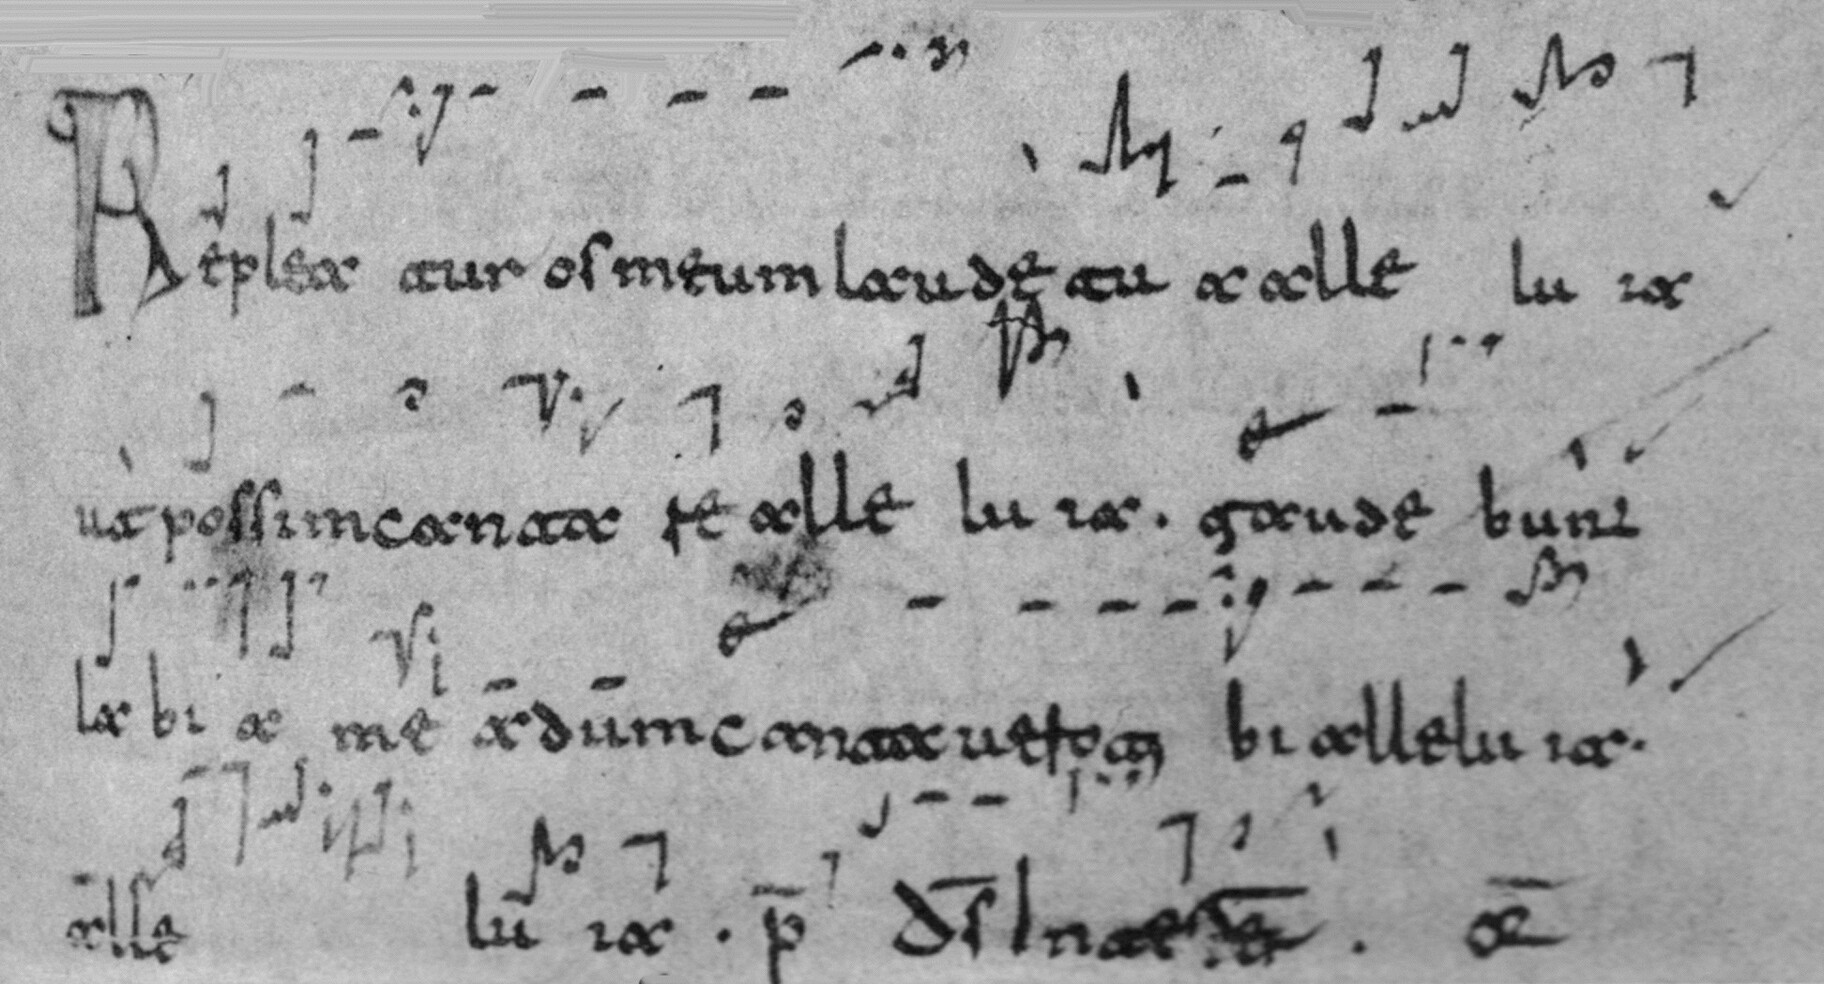 Repleatur os meum laude tua alle lu ia
ut possim cantare alle lu ia. gaudebunt
labia mea dum cantavero tibi alleluia.
alle lu ia. p̄ d̄s In te . ǣ